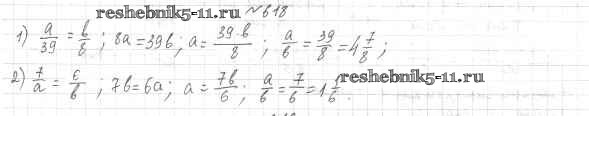 reshebnik5-11.ru №618
1) a/39 = b/8 ; 8a = 39b ; a = 39·b/8 ; a/b = 39/8 = 4 7/8 ;
2) 7/a = 6/b ; 7b = 6a ; a = 7b/6 ; a/b = 7/6 = 1 1/6 . reshebnik5-11.ru